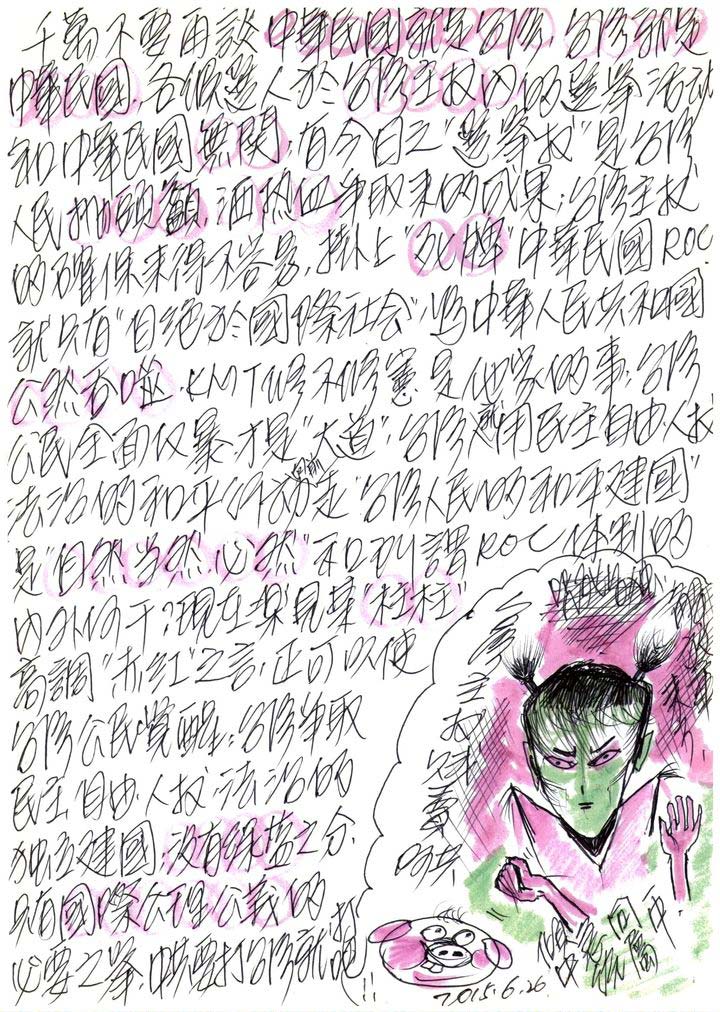 千萬不要再談中華民國就是台灣,台灣就是
中華民國,各候選人於台灣主权內的選举活动
和中華民國無関,有今日之"選举权"是台灣
人民拋頭顱,洒热血争取来的成果;台灣主权
的確保来得不容易,掛上"死牌"中華民國ROC
就只有"自绝於國際社会",為中華人民共和國
公然吞噬,KMT修不修憲是他家的事,台灣
公民全面反暴,才是"大道";台灣選用民主自由人权
法治的和平行動走"台灣人民的和平建國"
是"自然当然必然"和所謂ROC体制的
內外何干?現在某現草"柱柱"
高調"赤红"之言,正可以使
台灣公民覺醒;台灣争取
民主自由人权法治的
独立建國,没有绿蓝之分,
只有國際公理公義的
必要之举,中共要打台灣就打吧!!
台灣主权
2015.6.26